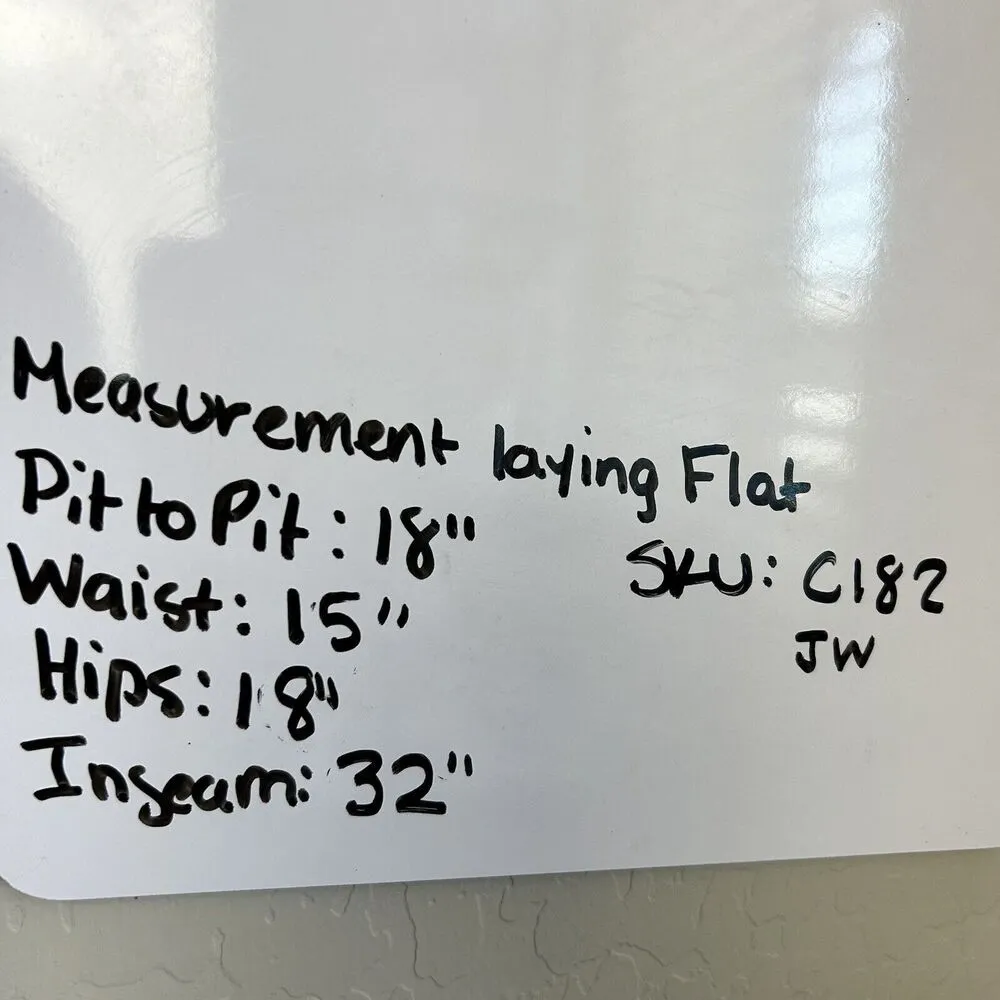 Measurement laying Flat
Pit to Pit: 18"
Waist: 15"
Hips: 18"
Inseam: 32"
SKU: C182
JW